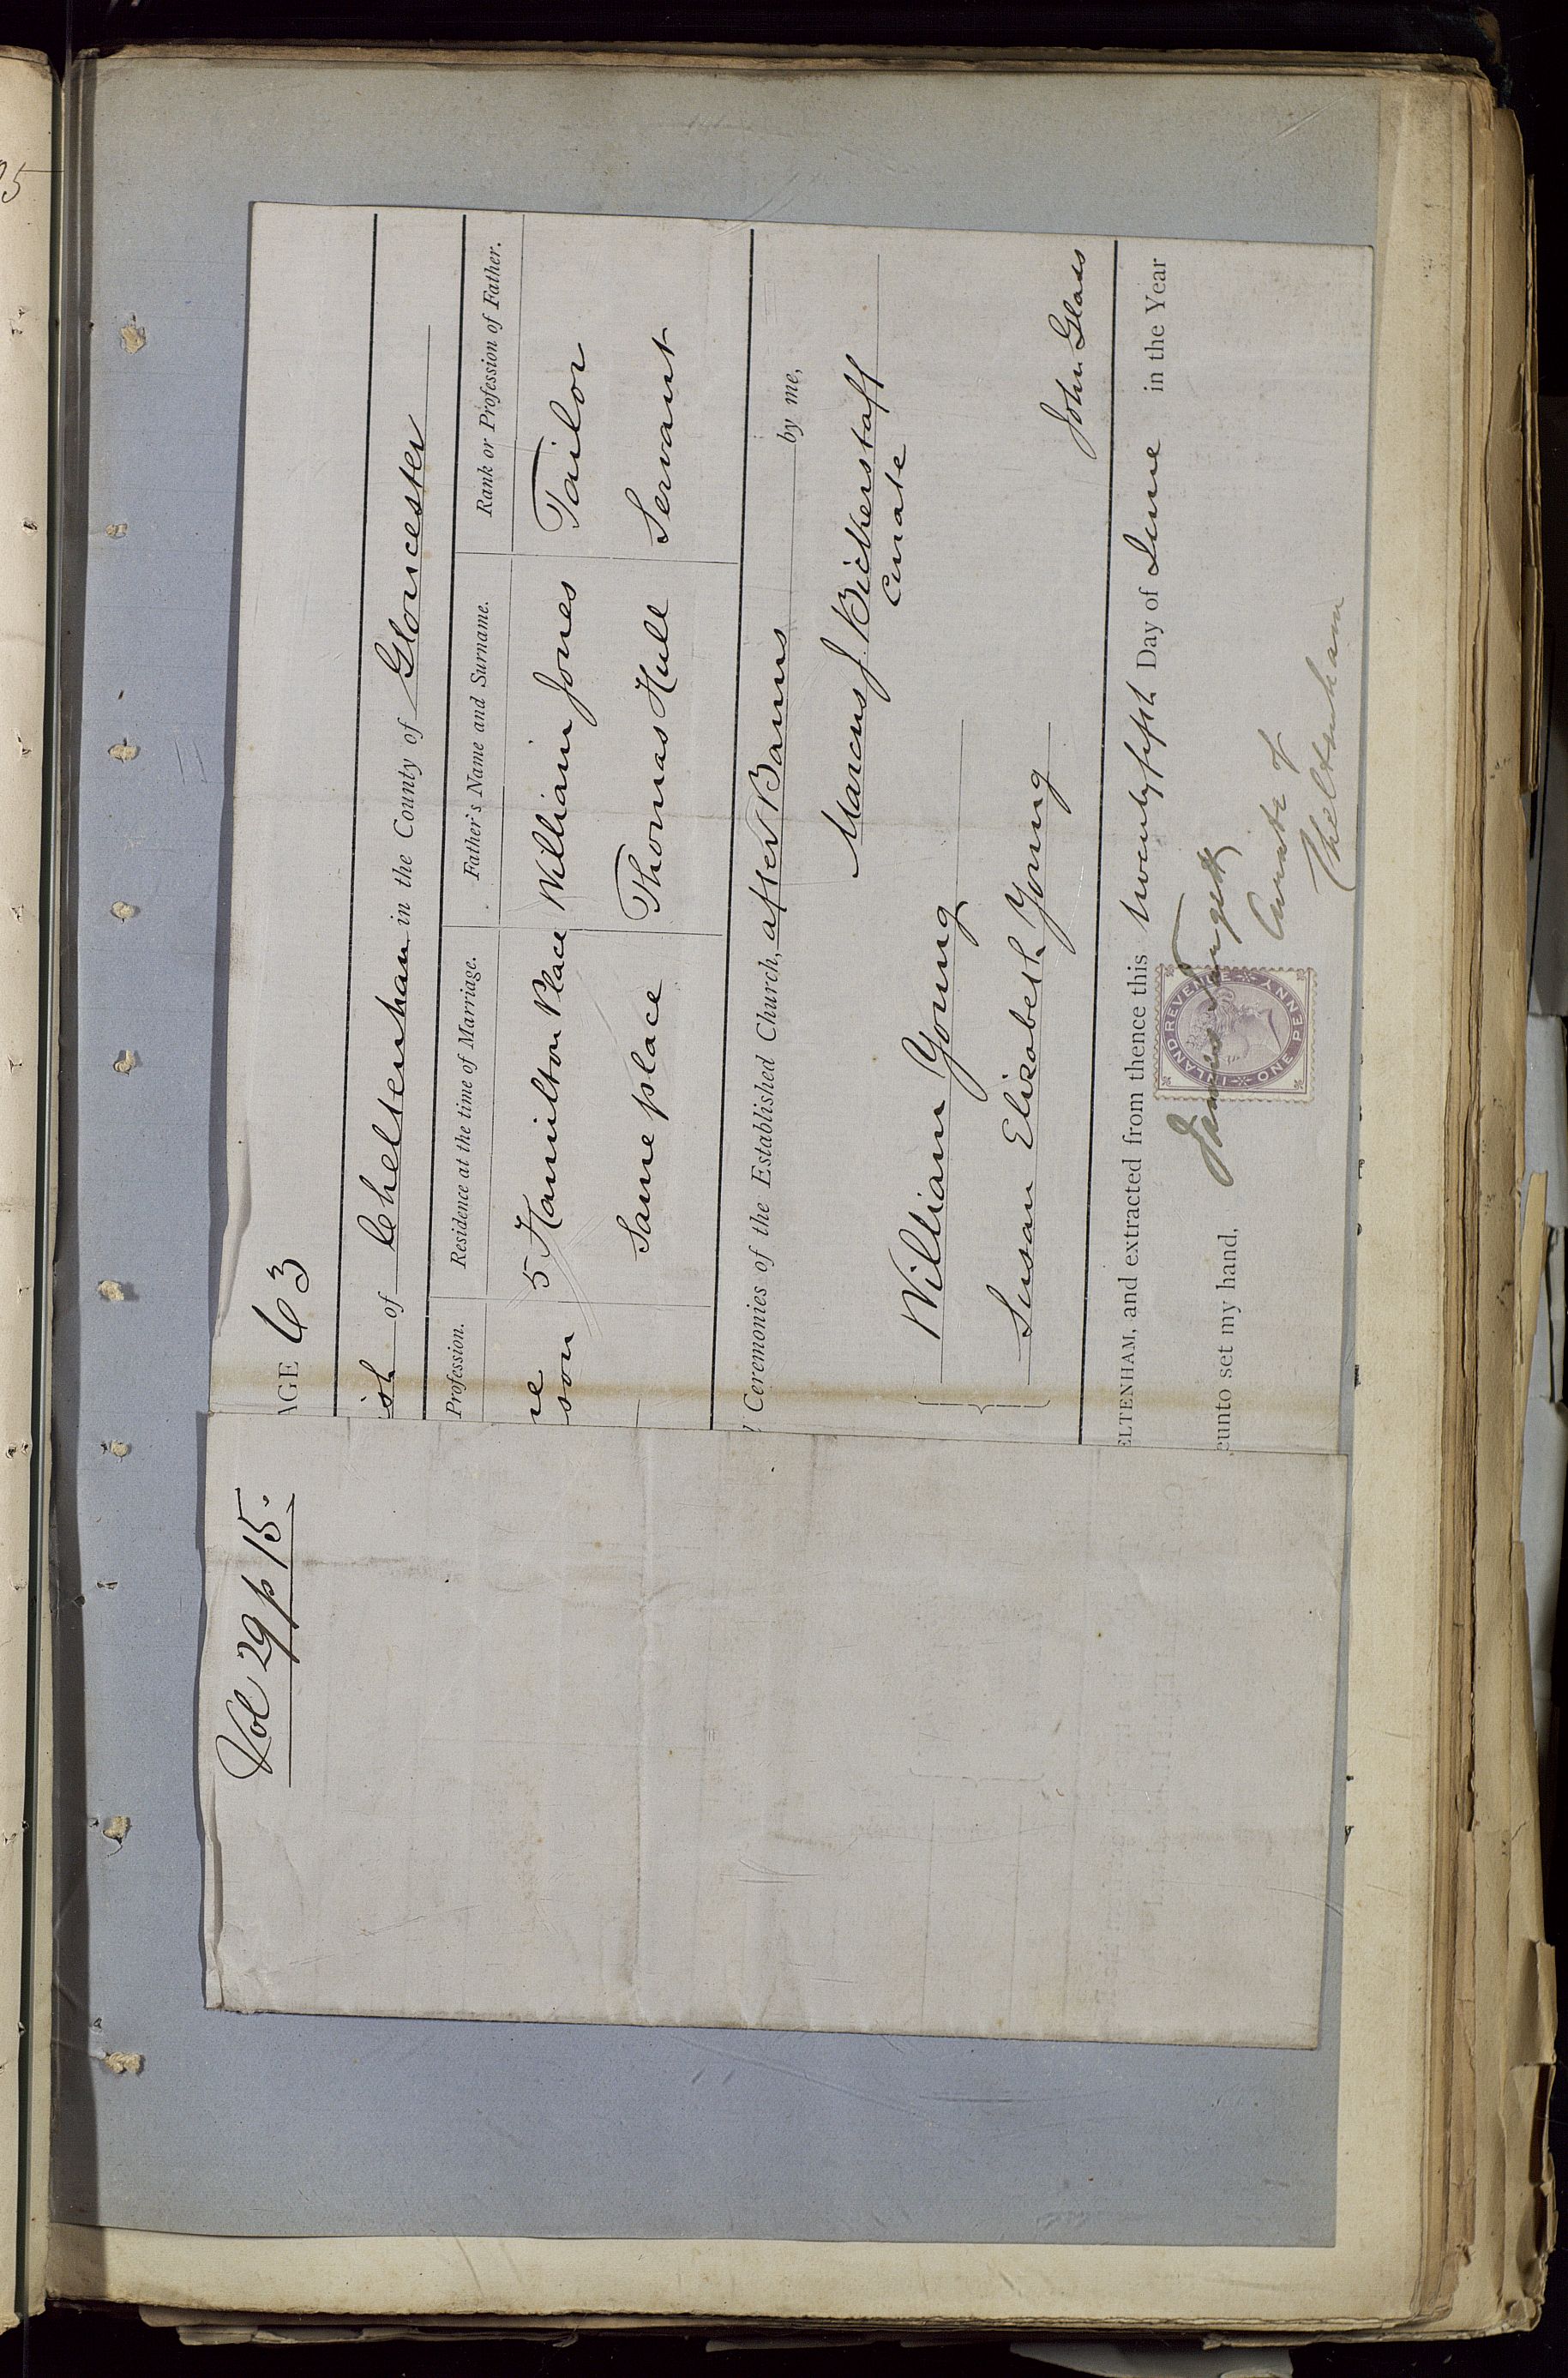 Vol 29 p 15.
AGE 63
ish of Cheltenham in the County of Gloucester
Profession. Residence at the time of Marriage. Father's Name and Surname. Rank or Profession of Father.
5 Hamilton Place William Jones Tailor
son
Same place Thomas Hull Servant
Ceremonies of the Established Church, after Banns by me,
Marcus J. Bickerstaff
Curate
William Young
Susan Elizabeth Young
John Glass
ELTENHAM, and extracted from thence this twenty fifth Day of June in the Year
eunto set my hand, James
Curate of
Cheltenham
INLAND REVENUE
ONE PENNY